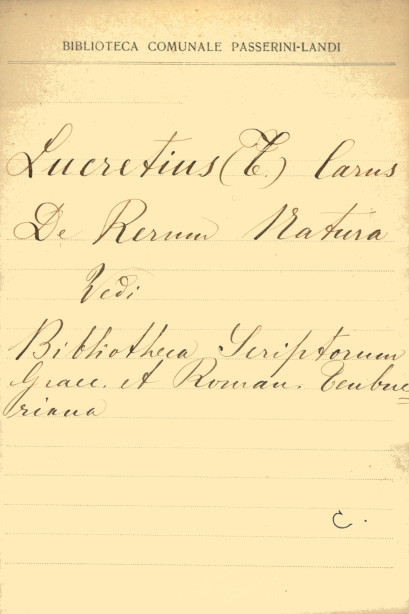 BIBLIOTECA COMUNALE PASSERINI-LANDI
Lucretius (T.) Carus
De Rerum Natura
Vedi
Bibliotheca Scriptorum
Graec. et Roman. Teubne=
riana
C.